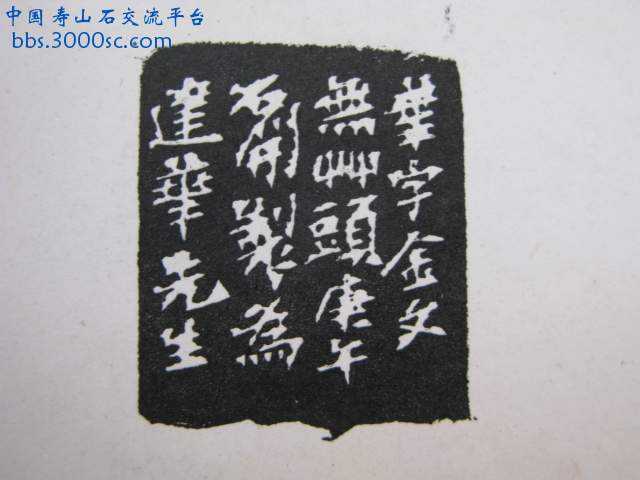 中国寿山石交流平台
bbs.3000sc.com
葉字金文
無艸頭庚午
石開製為
華先生